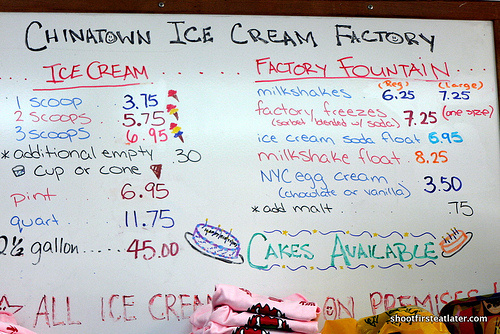 CHINATOWN ICE CREAM FACTORY
ICE CREAM
1 SCOOP 3.75
2 SCOOPS 5.75
3 SCOOPS 6.95
* additional empty .30
cup or cone
pint 6.95
quart 11.75
2½ gallon..... 45.00
FACTORY FOUNTAIN
(Reg) (Large)
milkshakes 6.25 7.25
factory freezes 7.25 (one size)
(sorbet blended w/ soda)
ice cream soda float 5.95
milkshake float 8.25
NYC egg cream 3.50
(chocolate or vanilla)
* add malt .75
CAKES AVAILABLE
ALL ICE CREAM ON PREMISES
shootfirsteatlater.com